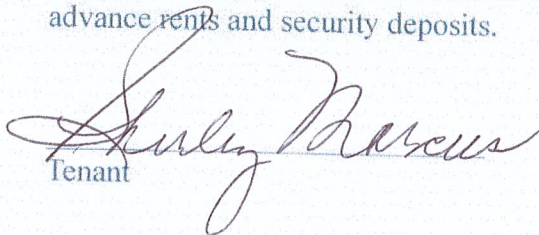 advance rents and security deposits.
Shirley Marcus
Tenant